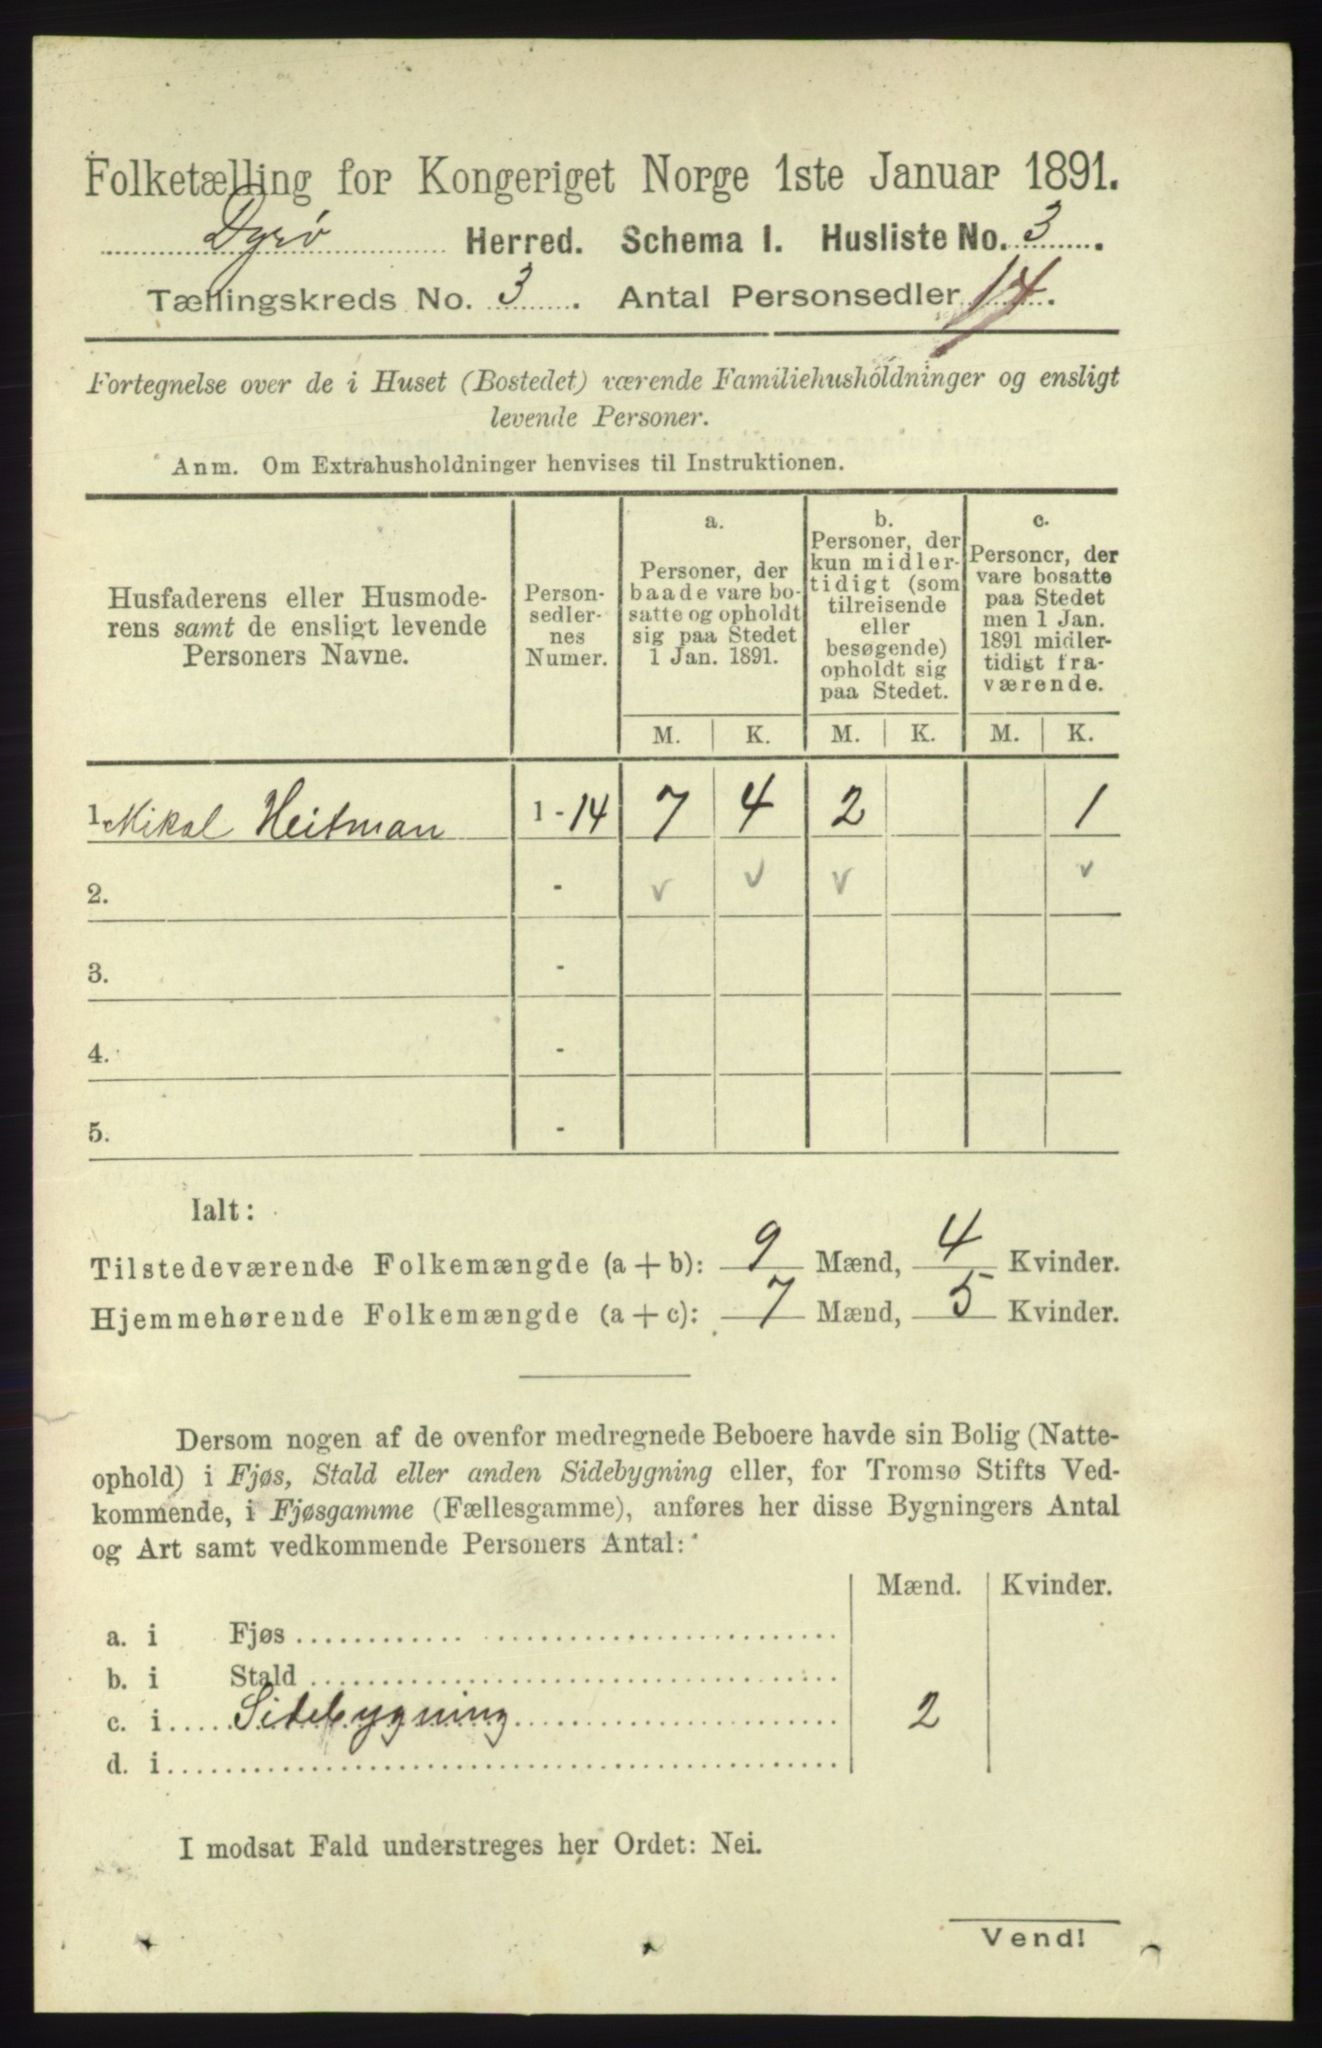 Folketælling for Kongeriget Norge 1ste Januar 1891.
Dyrø Herred. Schema I. Husliste No. 3.
Tællingskreds No. 3. Antal Personsedler 14.
Fortegnelse over de i Huset (Bostedet) værende Familiehusholdninger og ensligt
levende Personer.
Anm. Om Extrahusholdninger henvises til Instruktionen.
Husfaderens eller Husmode-
rens samt de ensligt levende
Personers Navne.
Person-
sedler-
nes
Numer.
a.
Personer, der
baade vare bo-
satte og opholdt
sig paa Stedet
1 Jan. 1891.
b.
Personer, der
kun midler-
tidigt (som
tilreisende
eller
besøgende)
opholdt sig
paa Stedet.
c.
Personer, der
vare bosatte
paa Stedet
men 1 Jan.
1891 midler-
tidigt fra-
værende.
M. K. M. K. M. K.
1. Mikal Heitman 1 - 14 7 4 2 1
2. - v v v v
3. -
4. -
5. -
Ialt:
Tilstedeværende Folkemængde (a + b): 9 Mænd, 4 Kvinder.
Hjemmehørende Folkemængde (a + c): 7 Mænd, 5 Kvinder.
Dersom nogen af de ovenfor medregnede Beboere havde sin Bolig (Natte-
ophold) i Fjøs, Stald eller anden Sidebygning eller, for Tromsø Stifts Ved-
kommende, i Fjøsgamme (Fællesgamme), anføres her disse Bygningers Antal
og Art samt vedkommende Personers Antal:
Mænd. Kvinder.
a. i Fjøs
b. i Stald
c. i Sidebygning 2
d. i
I modsat Fald understreges her Ordet: Nei.
Vend!